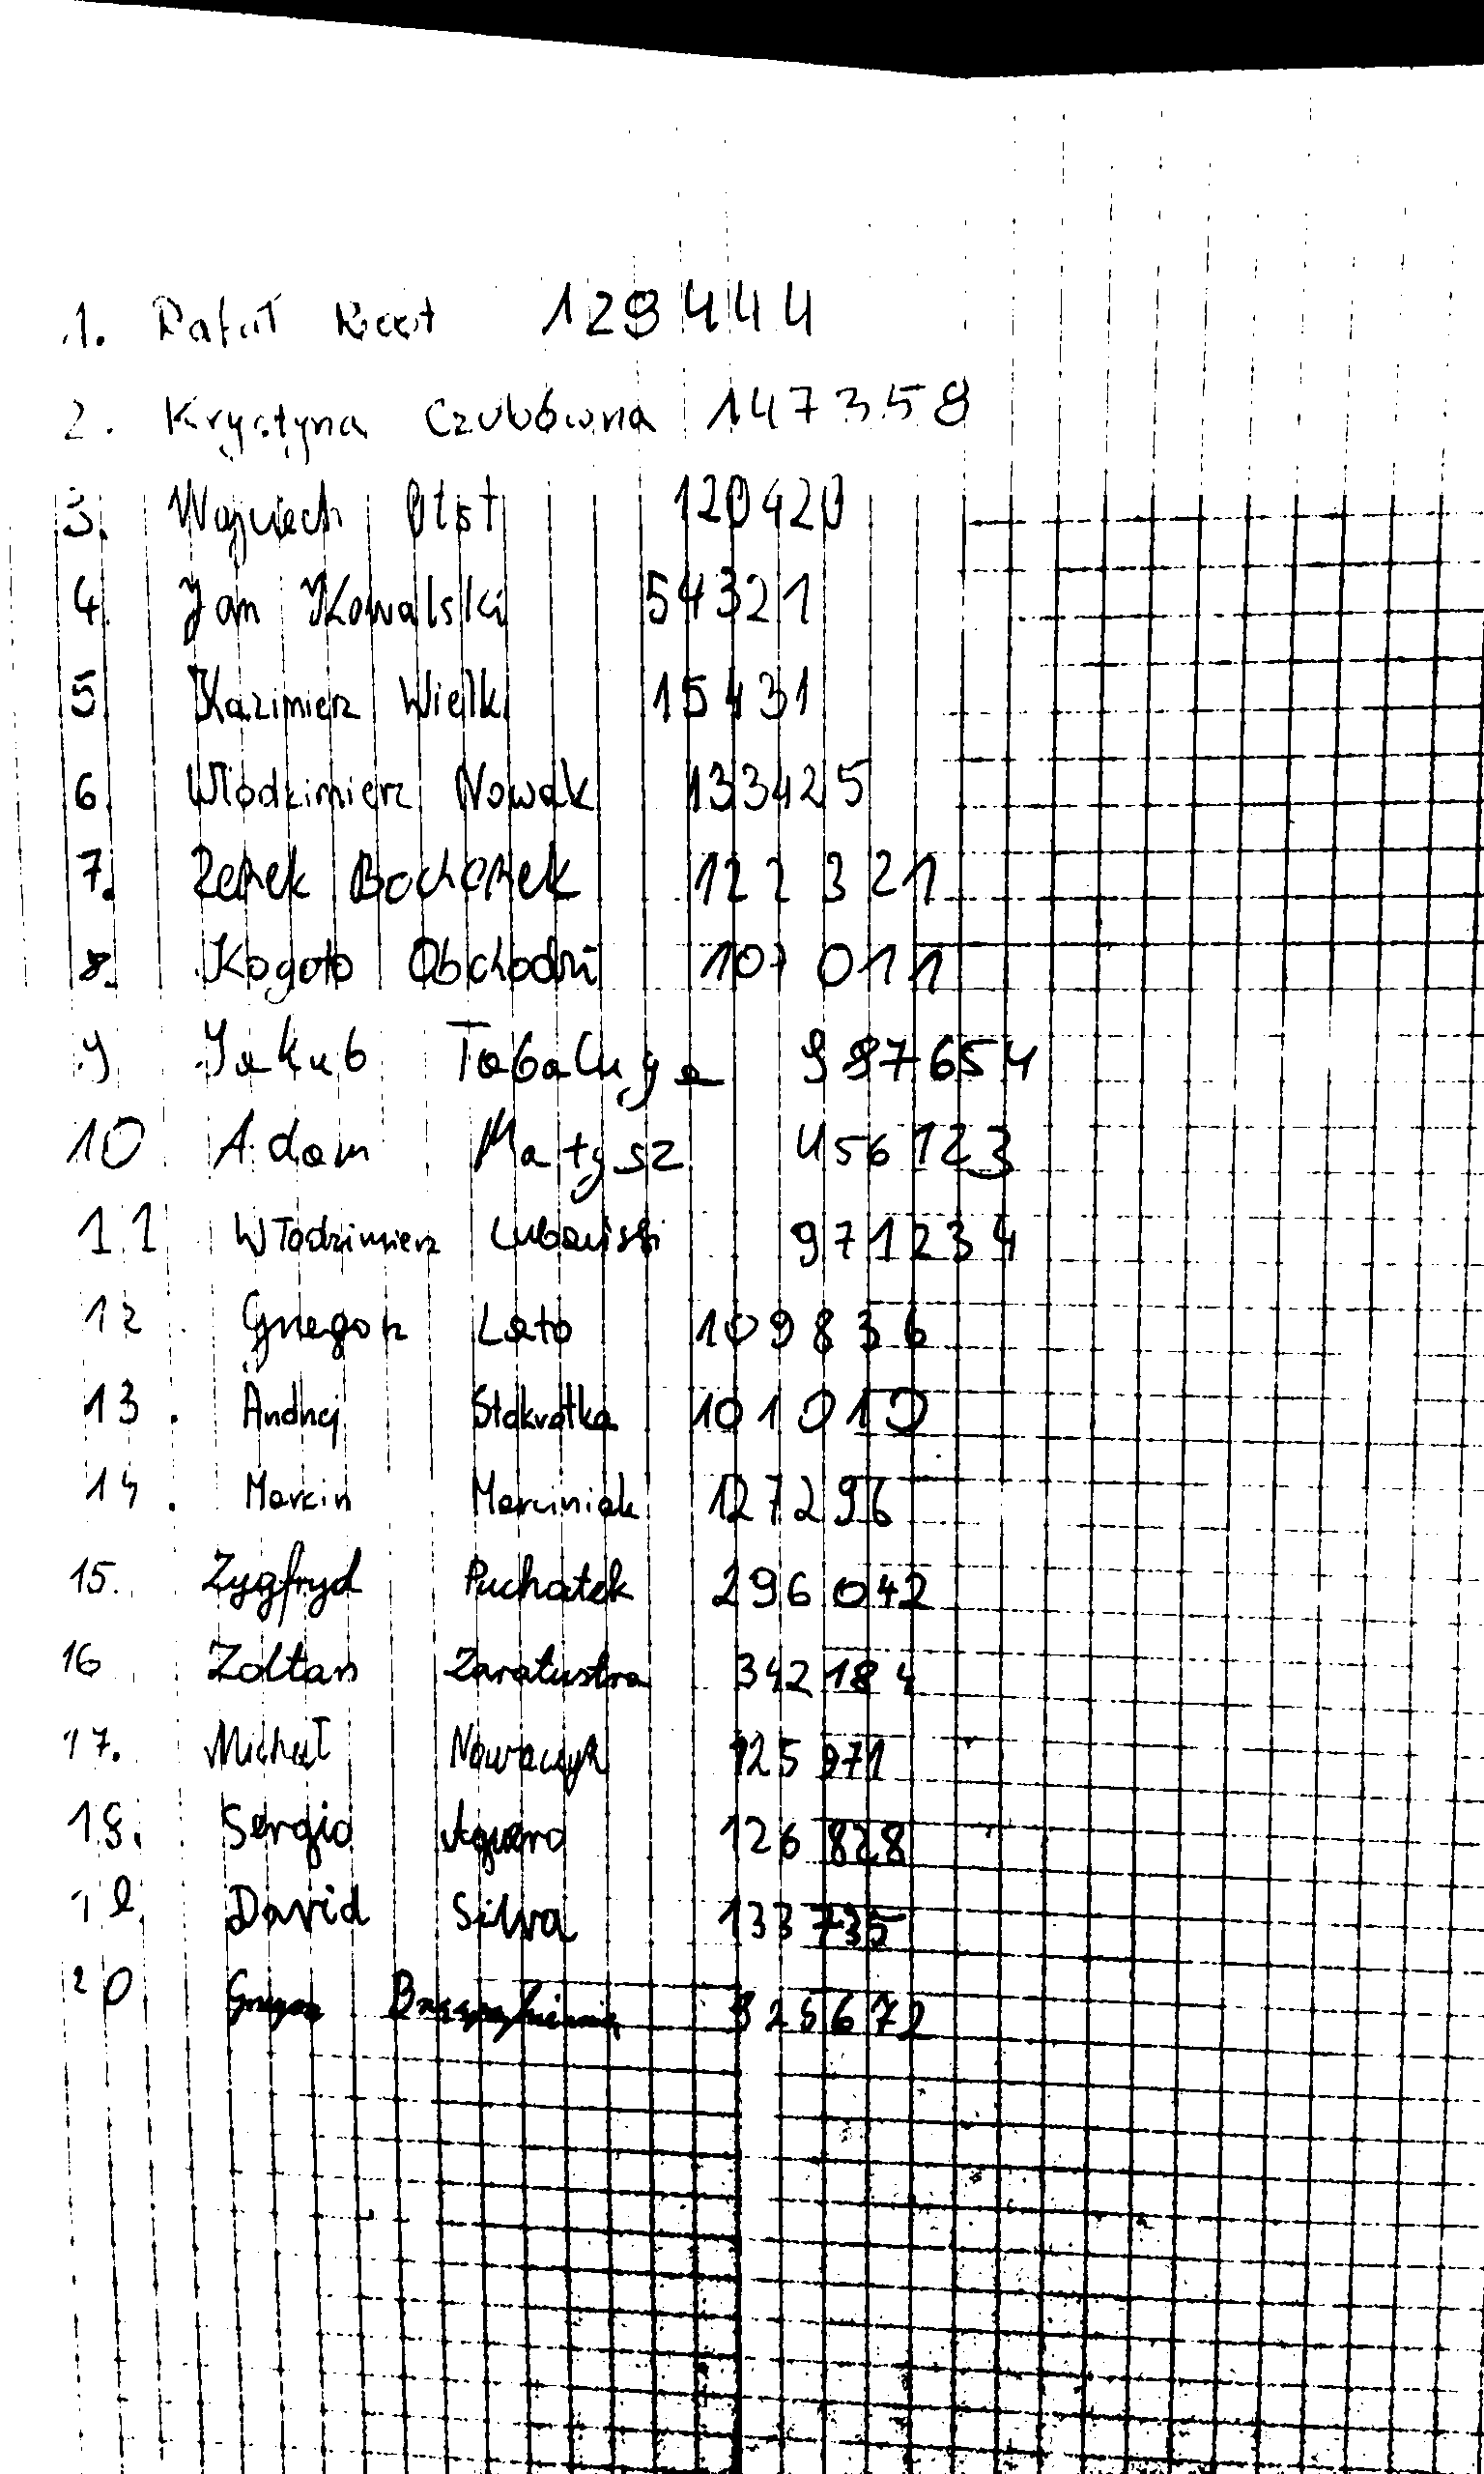 1. Rafał 129444
2. Krystyna Czubówna 147358
3. Wojciech 120420
4. Jan Kowalski 54321
5 Kazimierz Wielki 15431
6 Włodzimierz Nowak 133425
7. Zenek Bochenek 122321
8. Kogoto Obchodzi 101011
9 Jakub Tabaluga 987654
10 Adam Małysz 456123
11 Włodzimierz Lubański 971234
12 Grzegorz Lato 109836
13. Andrzej Stokrotka 101010
14. Marcin Marciniak 127296
15. Zygfryd Puchatek 296042
16 Zoltan Zaratustra 342184
17. Michał Nowaczyk 125971
18. Sergio Aguero 126828
19. David Silva 133735
20 325672